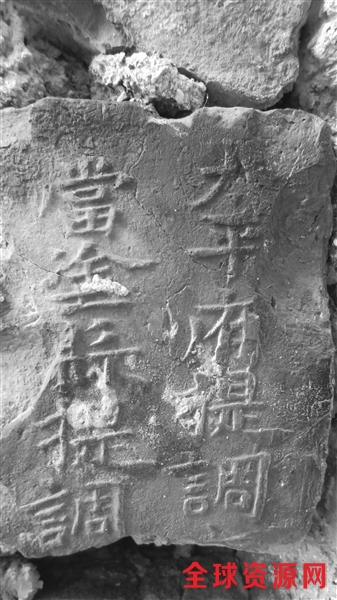 太平府提調
當塗縣提調
全球资源网